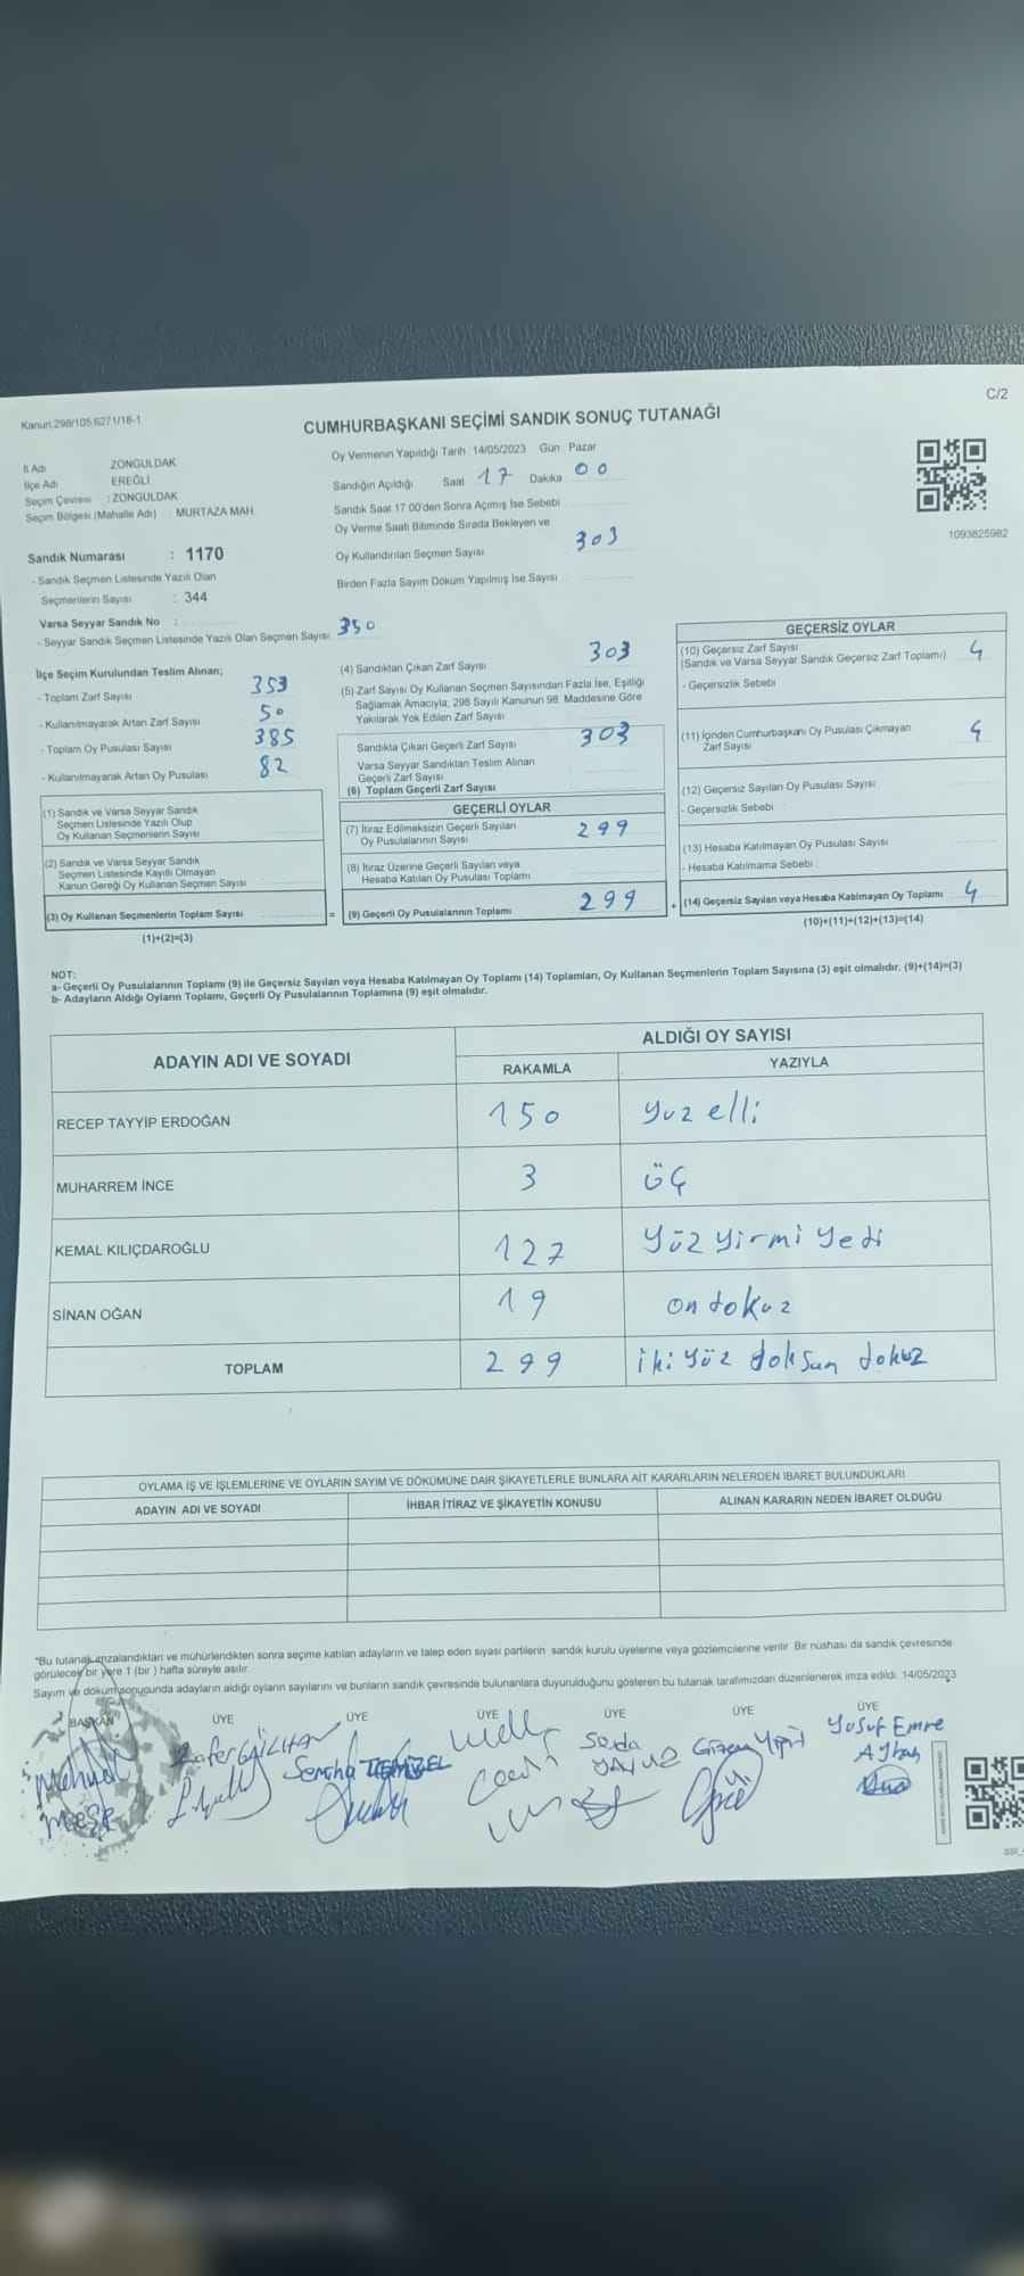 C/2
Kanun.298/105,6271/18-1
CUMHURBAŞKANI SEÇİMİ SANDIK SONUÇ TUTANAĞI
İl Adı ZONGULDAK
İlçe Adı EREĞLİ
Seçim Çevresi : ZONGULDAK
Seçim Bölgesi (Mahalle Adı) MURTAZA MAH.
Oy Vermenin Yapıldığı Tarih 14/05/2023 Gün Pazar
Sandığın Açıldığı Saat 17 Dakika 00
Sandık Saat 17 00'den Sonra Açımış İse Sebebi
Oy Verme Saati Bitiminde Sırada Bekleyen ve
Oy Kullandırılan Seçmen Sayısı 303
Birden Fazla Sayım Döküm Yapılmış İse Sayısı
1093825982
Sandık Numarası : 1170
- Sandık Seçmen Listesinde Yazılı Olan
Seçmenlerin Sayısı : 344
Varsa Seyyar Sandık No :
- Seyyar Sandık Seçmen Listesinde Yazılı Olan Seçmen Sayısı 350
İlçe Seçim Kurulundan Teslim Alınan;
- Toplam Zarf Sayısı 353
- Kullanılmayarak Artan Zarf Sayısı 50
- Toplam Oy Pusulası Sayısı 385
- Kullanılmayarak Artan Oy Pusulası 82
(1) Sandık ve Varsa Seyyar Sandık
Seçmen Listesinde Yazılı Olup
Oy Kullanan Seçmenlerin Sayısı
(2) Sandık ve Varsa Seyyar Sandık
Seçmen Listesinde Kayıtlı Olmayan
Kanun Gereği Oy Kullanan Seçmen Sayısı
(3) Oy Kullanan Seçmenlerin Toplam Sayısı
(1)+(2)=(3)
(4) Sandıktan Çıkan Zarf Sayısı 303
(5) Zarf Sayısı Oy Kullanan Seçmen Sayısından Fazla İse, Eşitliği
Sağlamak Amacıyla, 298 Sayılı Kanunun 98. Maddesine Göre
Yakılarak Yok Edilen Zarf Sayısı
Sandıkta Çıkan Geçerli Zarf Sayısı 303
Varsa Seyyar Sandıktan Teslim Alınan
Geçerli Zarf Sayısı
(6) Toplam Geçerli Zarf Sayısı
GEÇERLİ OYLAR
(7) İtiraz Edilmeksizin Geçerli Sayılan
Oy Pusulalarının Sayısı 299
(8) İtiraz Üzerine Geçerli Sayılan veya
Hesaba Katılan Oy Pusulası Toplamı
= (9) Geçerli Oy Pusulalarının Toplamı 299
GEÇERSİZ OYLAR
(10) Geçersiz Zarf Sayısı 4
(Sandık ve Varsa Seyyar Sandık Geçersiz Zarf Toplamı)
- Geçersizlik Sebebi
(11) İçinden Cumhurbaşkanı Oy Pusulası Çıkmayan 4
Zarf Sayısı
(12) Geçersiz Sayılan Oy Pusulası Sayısı
- Geçersizlik Sebebi
(13) Hesaba Katılmayan Oy Pusulası Sayısı
- Hesaba Katılmama Sebebi
+ (14) Geçersiz Sayılan veya Hesaba Katılmayan Oy Toplamı 4
(10)+(11)+(12)+(13)=(14)
NOT:
a- Geçerli Oy Pusulalarının Toplamı (9) ile Geçersiz Sayılan veya Hesaba Katılmayan Oy Toplamı (14) Toplamları, Oy Kullanan Seçmenlerin Toplam Sayısına (3) eşit olmalıdır. (9)+(14)=(3)
b- Adayların Aldığı Oyların Toplamı, Geçerli Oy Pusulalarının Toplamına (9) eşit olmalıdır.
ADAYIN ADI VE SOYADI ALDIĞI OY SAYISI
RAKAMLA YAZIYLA
RECEP TAYYİP ERDOĞAN 150 yuz elli
MUHARREM İNCE 3 üç
KEMAL KILIÇDAROĞLU 127 yüz yirmi yedi
SİNAN OĞAN 19 on dokuz
TOPLAM 299 iki yüz doksan dokuz
OYLAMA İŞ VE İŞLEMLERİNE VE OYLARIN SAYIM VE DÖKÜMÜNE DAİR ŞİKAYETLERLE BUNLARA AİT KARARLARIN NELERDEN İBARET BULUNDUKLARI
ADAYIN ADI VE SOYADI İHBAR İTİRAZ VE ŞİKAYETİN KONUSU ALINAN KARARIN NEDEN İBARET OLDUĞU
"Bu tutanak imzalandıktan ve mühürlendikten sonra seçime katılan adayların ve talep eden siyasi partilerin sandık kurulu üyelerine veya gözlemcilerine verilir. Bir nüshası da sandık çevresinde
görülecek bir yere 1 (bir ) hafta süreyle asılır.
Sayım ve döküm sonucunda adayların aldığı oyların sayılarını ve bunların sandık çevresinde bulunanlara duyurulduğunu gösteren bu tutanak tarafımızdan düzenlenerek imza edildi. 14/05/2023
BAŞKAN ÜYE ÜYE ÜYE ÜYE ÜYE ÜYE
Seda
Gizem Yiğit
Yusuf Emre